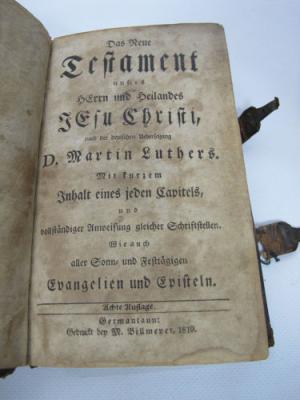 Das Neue
Testament
unsers
HErrn und Heilandes
JEsu Christi,
nach der deutschen Uebersetzung
D. Martin Luthers.
Mit kurzem
Inhalt eines jeden Capitels,
und
vollständiger Anweisung gleicher Schriftstellen.
Wie auch
aller Sonn- und Festtägigen
Evangelien und Episteln.
Achte Auflage.
Germantaun:
Gedruckt bey M. Billmeyer, 1819.